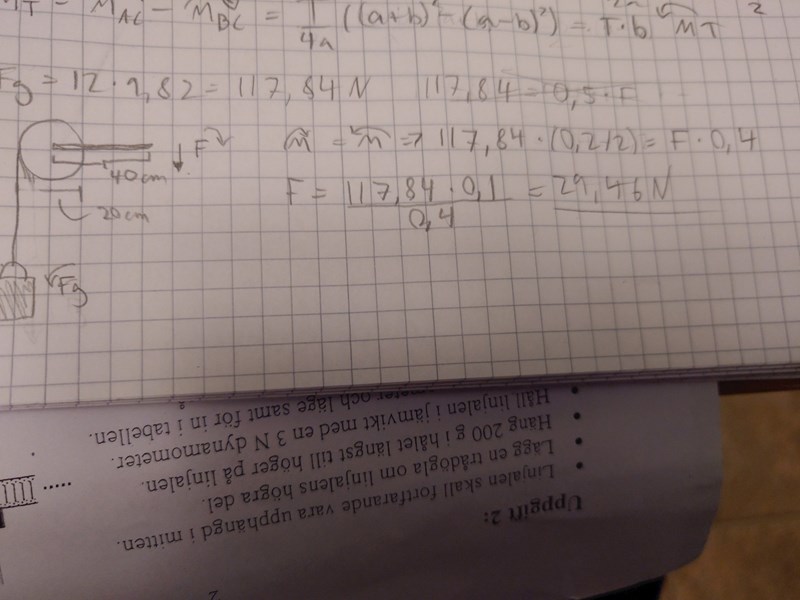 M_AC - M_BC = 1/4a ((a+b)² - (a-b)²) = T·b MT 2
Fg = 12 · 9,82 = 117,84 N 117,84 = 0,5 · F
M = M => 117,84 · (0,2/2) = F · 0,4
F = 117,84 · 0,1 / 0,4 = 29,46 N
F
40cm
20cm
Fg
Uppgift 2:
• Linjalen skall fortfarande vara upphängd i mitten.
• Lägg en trådögla om linjalens högra del.
• Häng 200 g i hålet längst till höger på linjalen.
• Håll linjalen i jämvikt med en 3 N dynamometer.
och läge samt för in i tabellen.